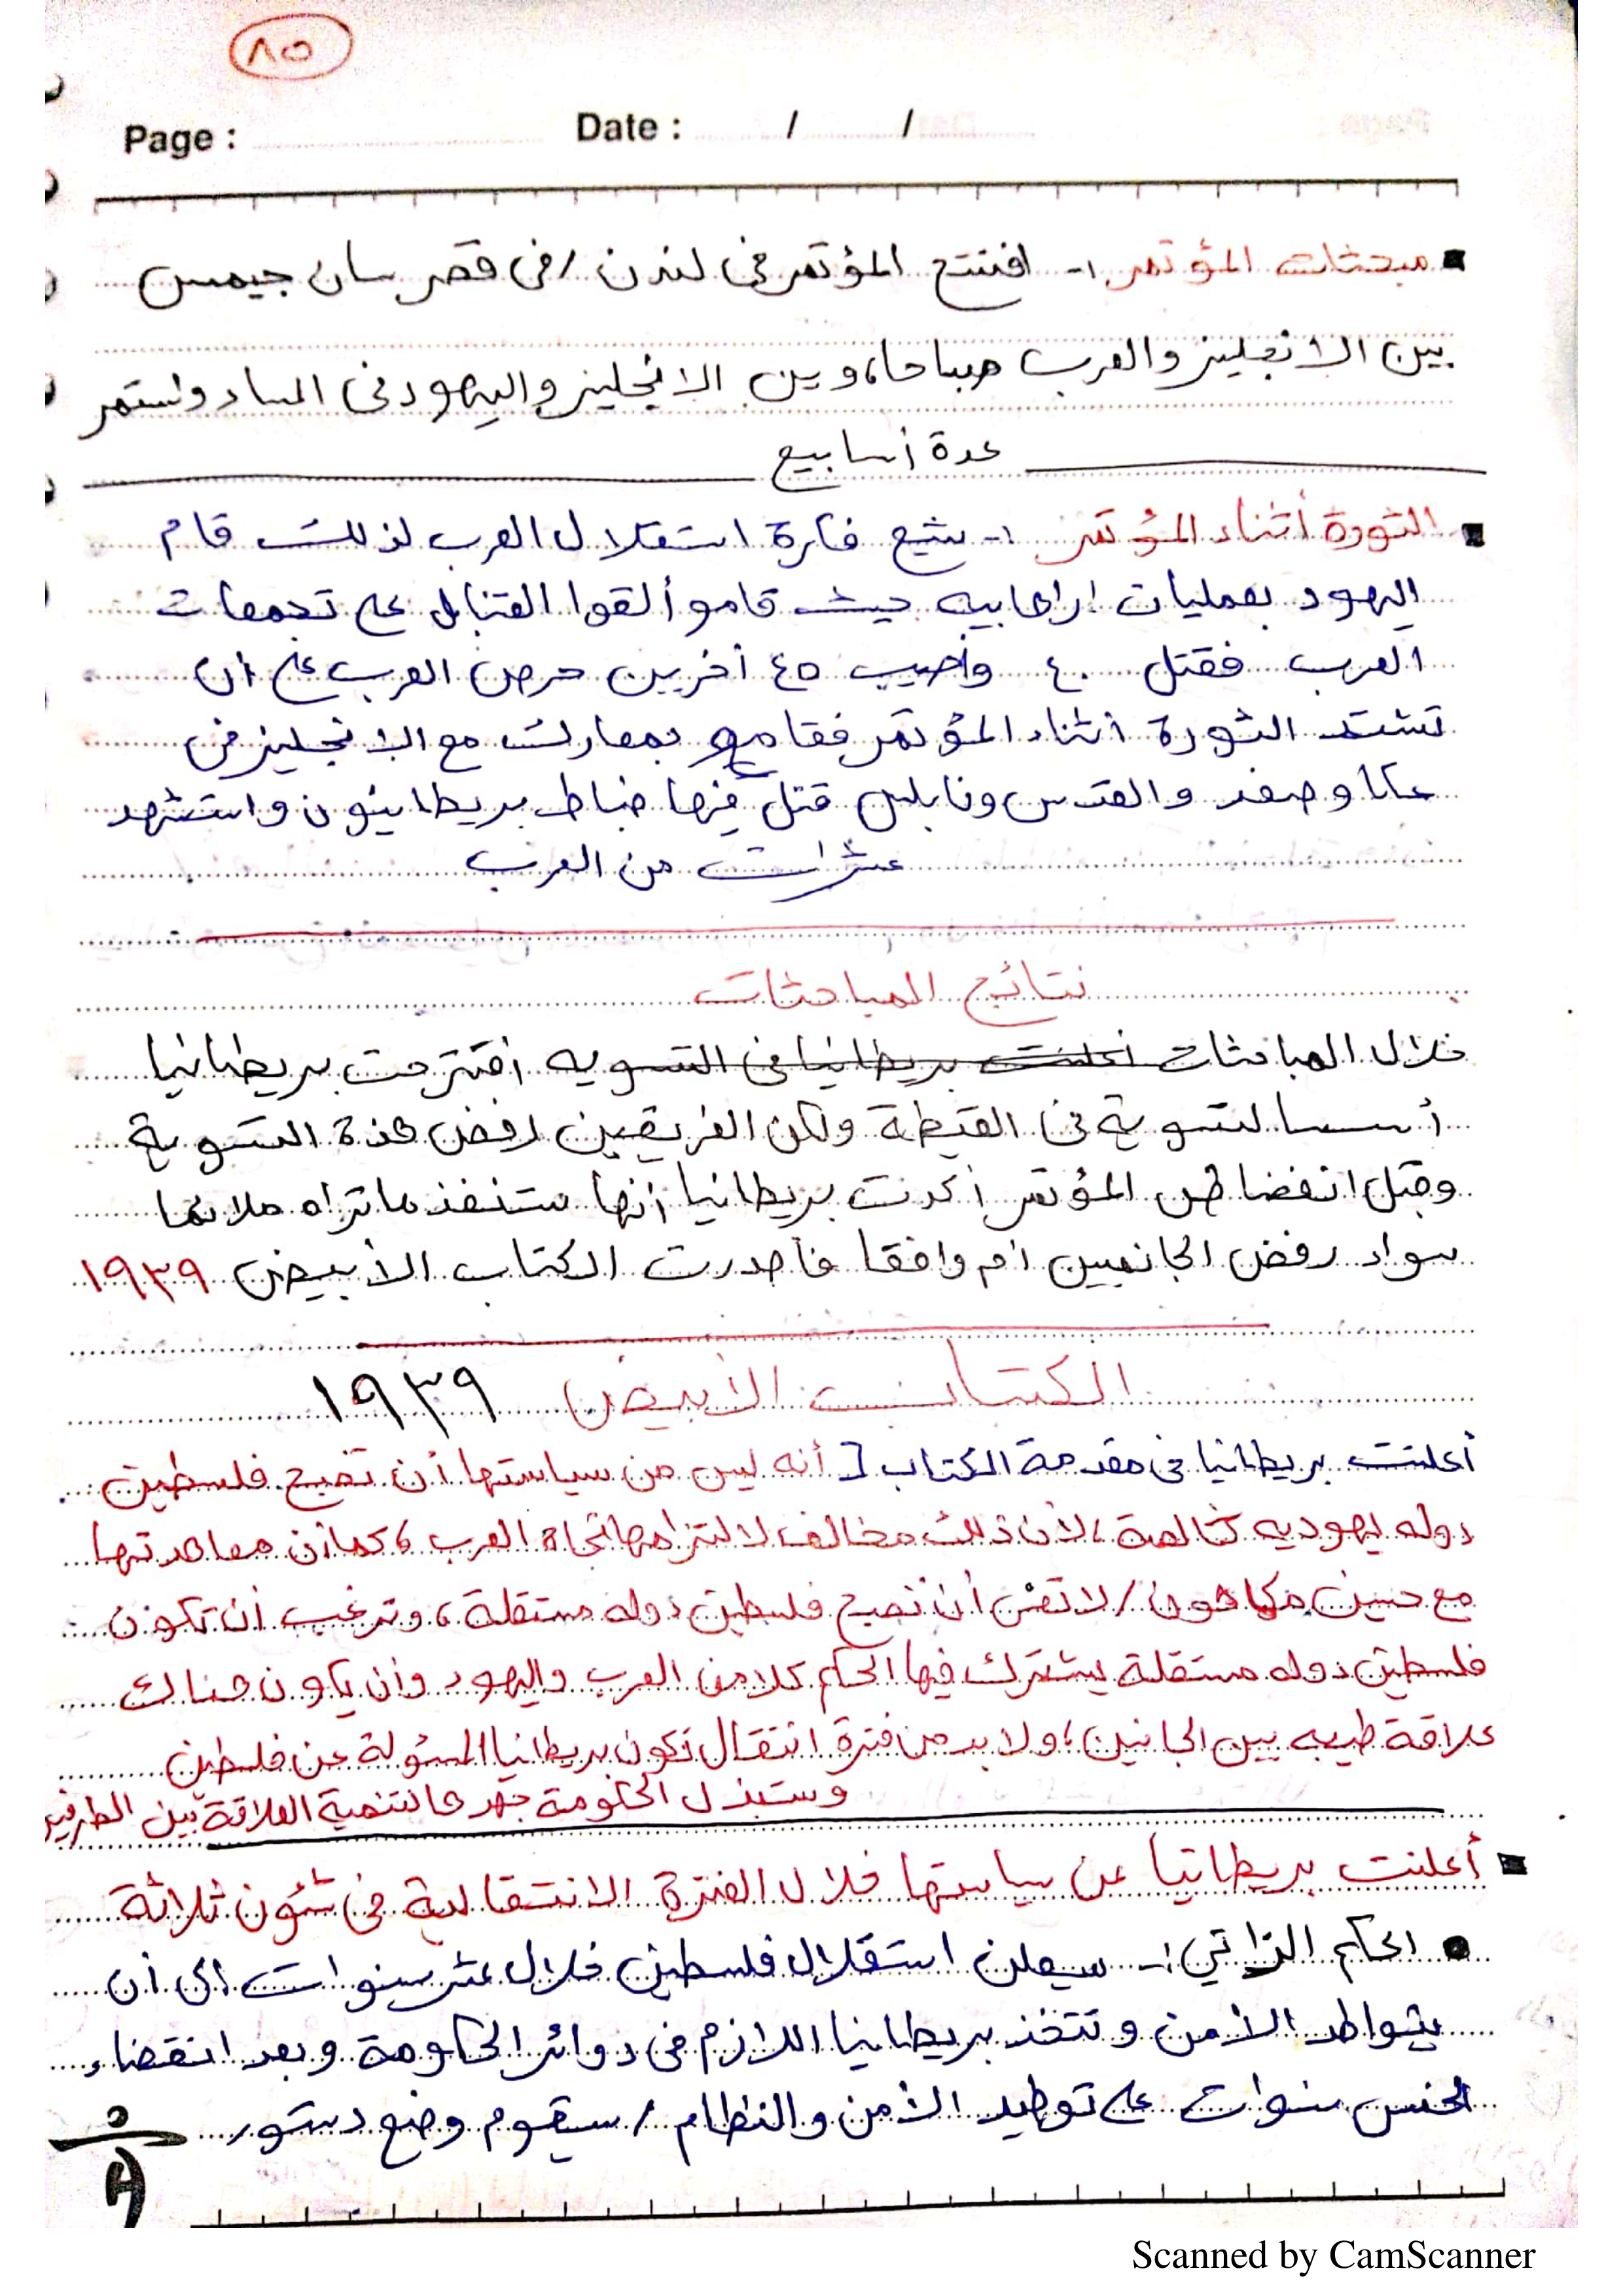 ٨٥
Page : Date : / /
▪ مبحثات المؤتمر ١- افتتح المؤتمر في لندن / في قصر سان جيمس
بين الانجليز والعرب صباحا، وبين الانجليز واليهود في المساء واستمر
عدة أسابيع
▪ الثورة أثناء المؤتمر ١- شيع فكرة استقلال العرب لذلك قام
اليهود بعمليات ارهابيه حيث قامو ألقوا القنابل على تجمعات
العرب فقتل ٤٠ وأصيب ٤٥ أخرين حرص العرب على ان
تشتد الثورة أثناء المؤتمر فقامو بمعارك مع الانجليز في
عكا وصفد والقدس ونابلس قتل فيها ضباط بريطانيون واستشهد
عشرات من العرب
نتائج المباحثات
خلال المباحثات اعلنت بريطانيا في التسويه اقترحت بريطانيا
أسسا لتسوية في القيظة ولكن الفريقين رفض هذة التسوية
وقبل انفضاض المؤتمر أكدت بريطانيا أنها ستنفذ ماتراه ملائما
سواء رفض الجانبين ام وافقا فأصدرت الكتاب الأبيض ١٩٣٩
الكتاب الأبيض ١٩٣٩
أعلنت بريطانيا في مقدمة الكتاب [ أنه ليس من سياستها أن تصبح فلسطين
دوله يهوديه خالصة، لأن ذلك مخالف لالتزامها تجاة العرب، كما أن معاهدتها
مع حسين مكماهون / لا تعني أن تصبح فلسطين دوله مستقلة، وترغب أن تكون
فلسطين دوله مستقلة يشترك فيها الحكم كلا من العرب واليهود وأن يكون هناك
علاقة طيبه بين الجانبين، ولا بد من فترة انتقال تكون بريطانيا المسئولة عن فلسطين
وستبذل الحكومة جهدها لتنمية العلاقة بين الطرفين
▪ أعلنت بريطانيا عن سياستها خلال الفترة الانتقالية في شئون ثلاثة
● الحكم الذاتي :- سيعلن استقلال فلسطين خلال عشر سنوات الى أن
يتواطد الأمن وتتخذ بريطانيا اللازم في دوائر الحكومة وبعد انقضاء
الخمس سنوات على توطيد الأمن والنظام / سيقوم وضع دستور
Scanned by CamScanner